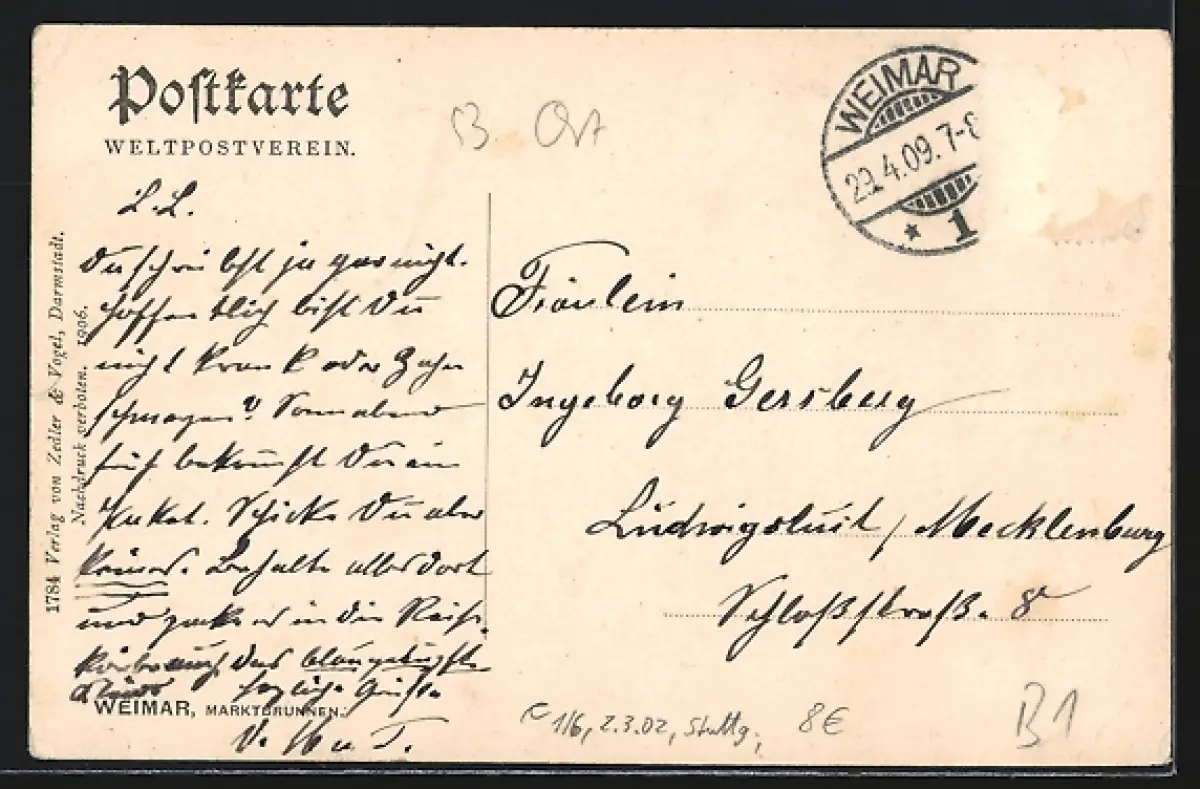 Postkarte
WELTPOSTVEREIN.
B. Ort
WEIMAR
29.4.09. 7-8
* 1
L. L.
Du schreibst ja gar nicht.
Hoffentlich bist Du
nicht krank oder Zahn
schmerzen? Sonnabend
früh bekommst Du ein
Paket. Schicke Du aber
keines. Behalte alles dort
und packe es in die Reise
körbe auch das
Kleid herzliche Grüße
V.
WEIMAR, MARKTBRUNNEN.
1784 Verlag von Zedler & Vogel, Darmstadt.
Nachdruck verboten. 1906.
Fräulein
Ingeborg Gersberg
Ludwigslust / Mecklenburg
Schloßstraße. 8
116, 2.3.02, Stuttg.
8€
B1